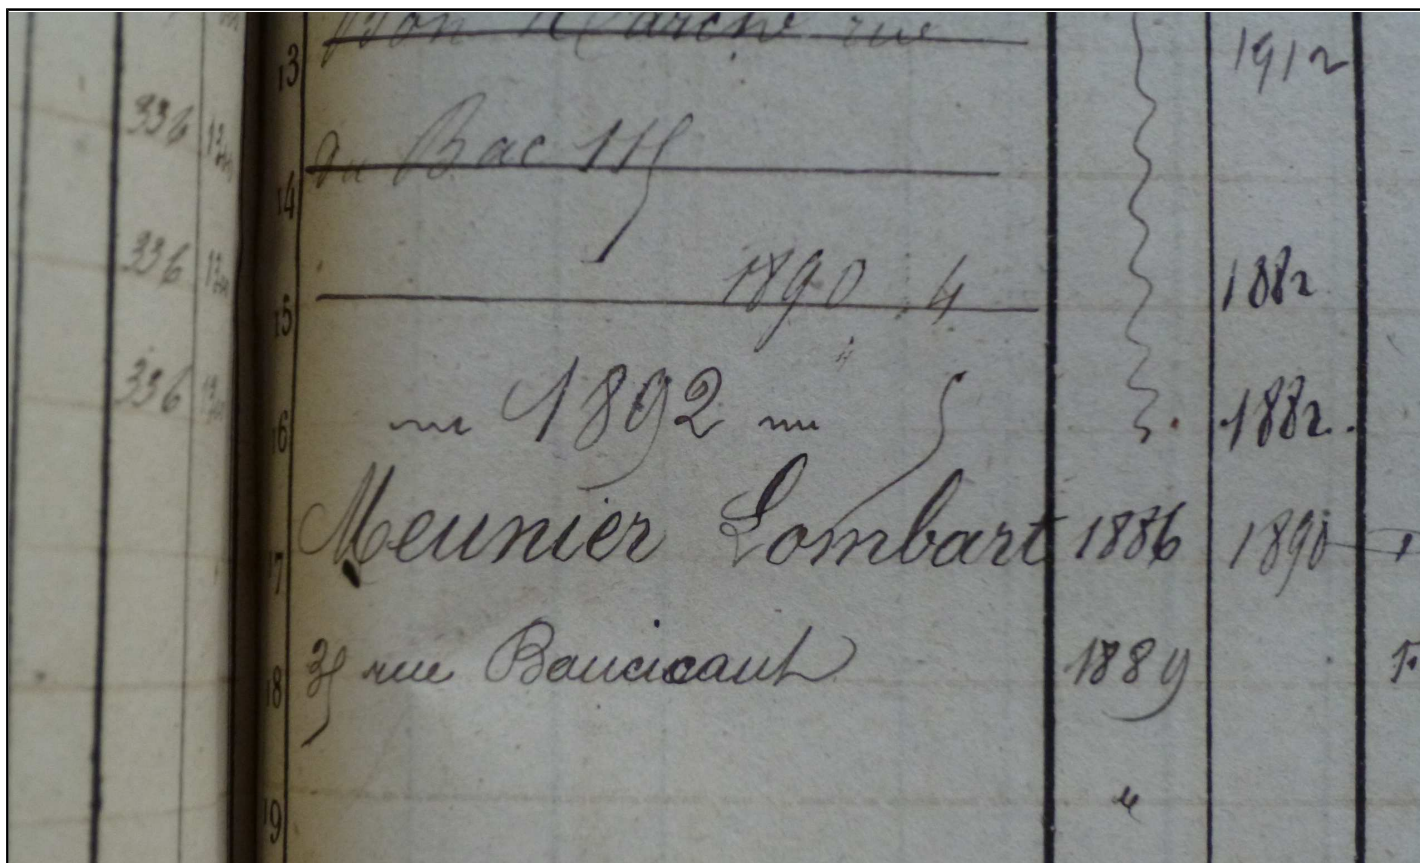 13 Bon Marché rue 1912
336
du Bac 115
14
336 1890 4 1882
15
336 1892 1882
16
Meunier Lombart 1886 1890
17
35 rue Boucicaut 1889
18
19